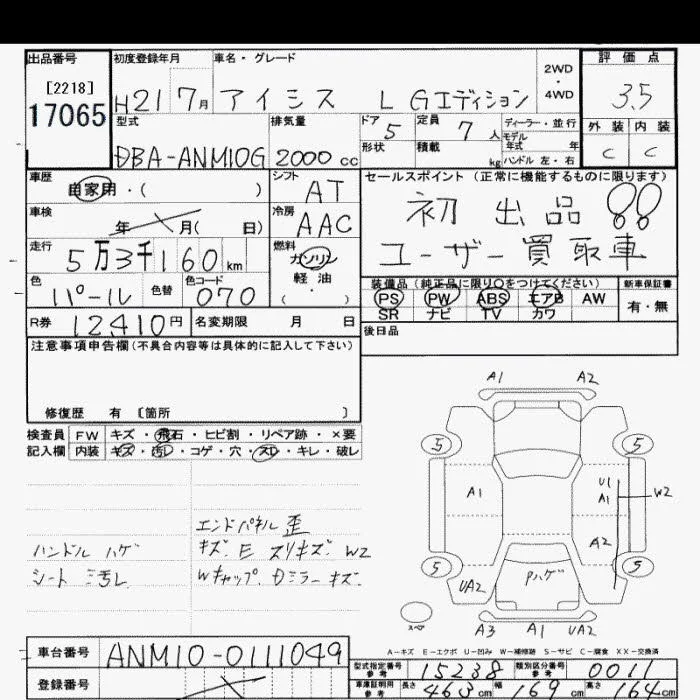 出品番号 初度登録年月 車名・グレード 2WD・4WD 評価点
[2218]
17065 H21 7月 アイシス L Gエディション 3.5
型式 排気量 ドア 5 定員 7人 ディーラー・並行 外装 内装
モデル年式 年
DBA-ANM10G 2000cc 形状 積載 kg ハンドル 左・右 C C
車歴 シフト セールスポイント(正常に機能するものに限ります)
自家用・( ) AT 初出品!!
車検 年 月( 日) 冷房 AAC ユーザー買取車
走行 5万3千160km 燃料 ガソリン
軽油
( ・ )
色 パール 色替 色コード 070 装備品(純正品に限り○をつけてください) 新車保証書
PS PW ABS エアB AW 有・無
SR ナビ TV カワ
R券 12410円 名変期限 月 日 後日品
注意事項申告欄(不具合内容等は具体的に記入して下さい)
修復歴 有 [箇所 ]
検査員 FW キズ・飛石・ヒビ割・リペア跡・×要
記入欄 内装 キズ・汚れ・コゲ・穴・スレ・キレ・破レ
A1 A2
5 5
A1 U1 A1 W2
A2
5 5
UA2 Pハゲ
スペア
A3 A1 UA2
エンドパネル歪
ハンドル ハゲ キズ.E スリキズ.W2
シート 汚レ Wキャップ.Dミラーキズ.
A-キズ E-エクボ U-凹み W-補修跡 S-サビ C-腐食 XX-交換済
車台番号 ANM10-0111049
型式指定番号 参考 15238 類別区分番号 参考 0011
登録番号 車庫証明用 参考 長さ 463cm 幅 169cm 高さ 164cm